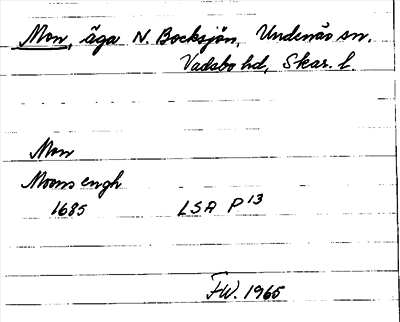 Mon, äga N. Bocksjön, Undenäs sn.
Vadsbo hd, Skar. l.
Mon
Moens engh
1685 LSA P 13
FW. 1965